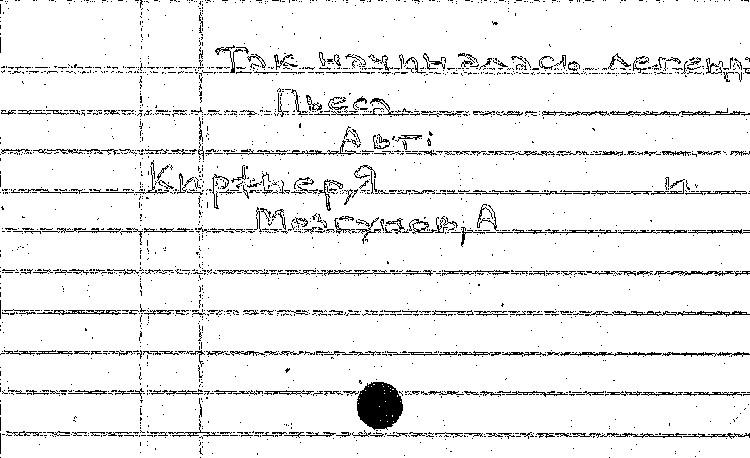 Так начиналась легенда
Пьеса.
Авт:
Киржнер,Я и
Мозгунов,А